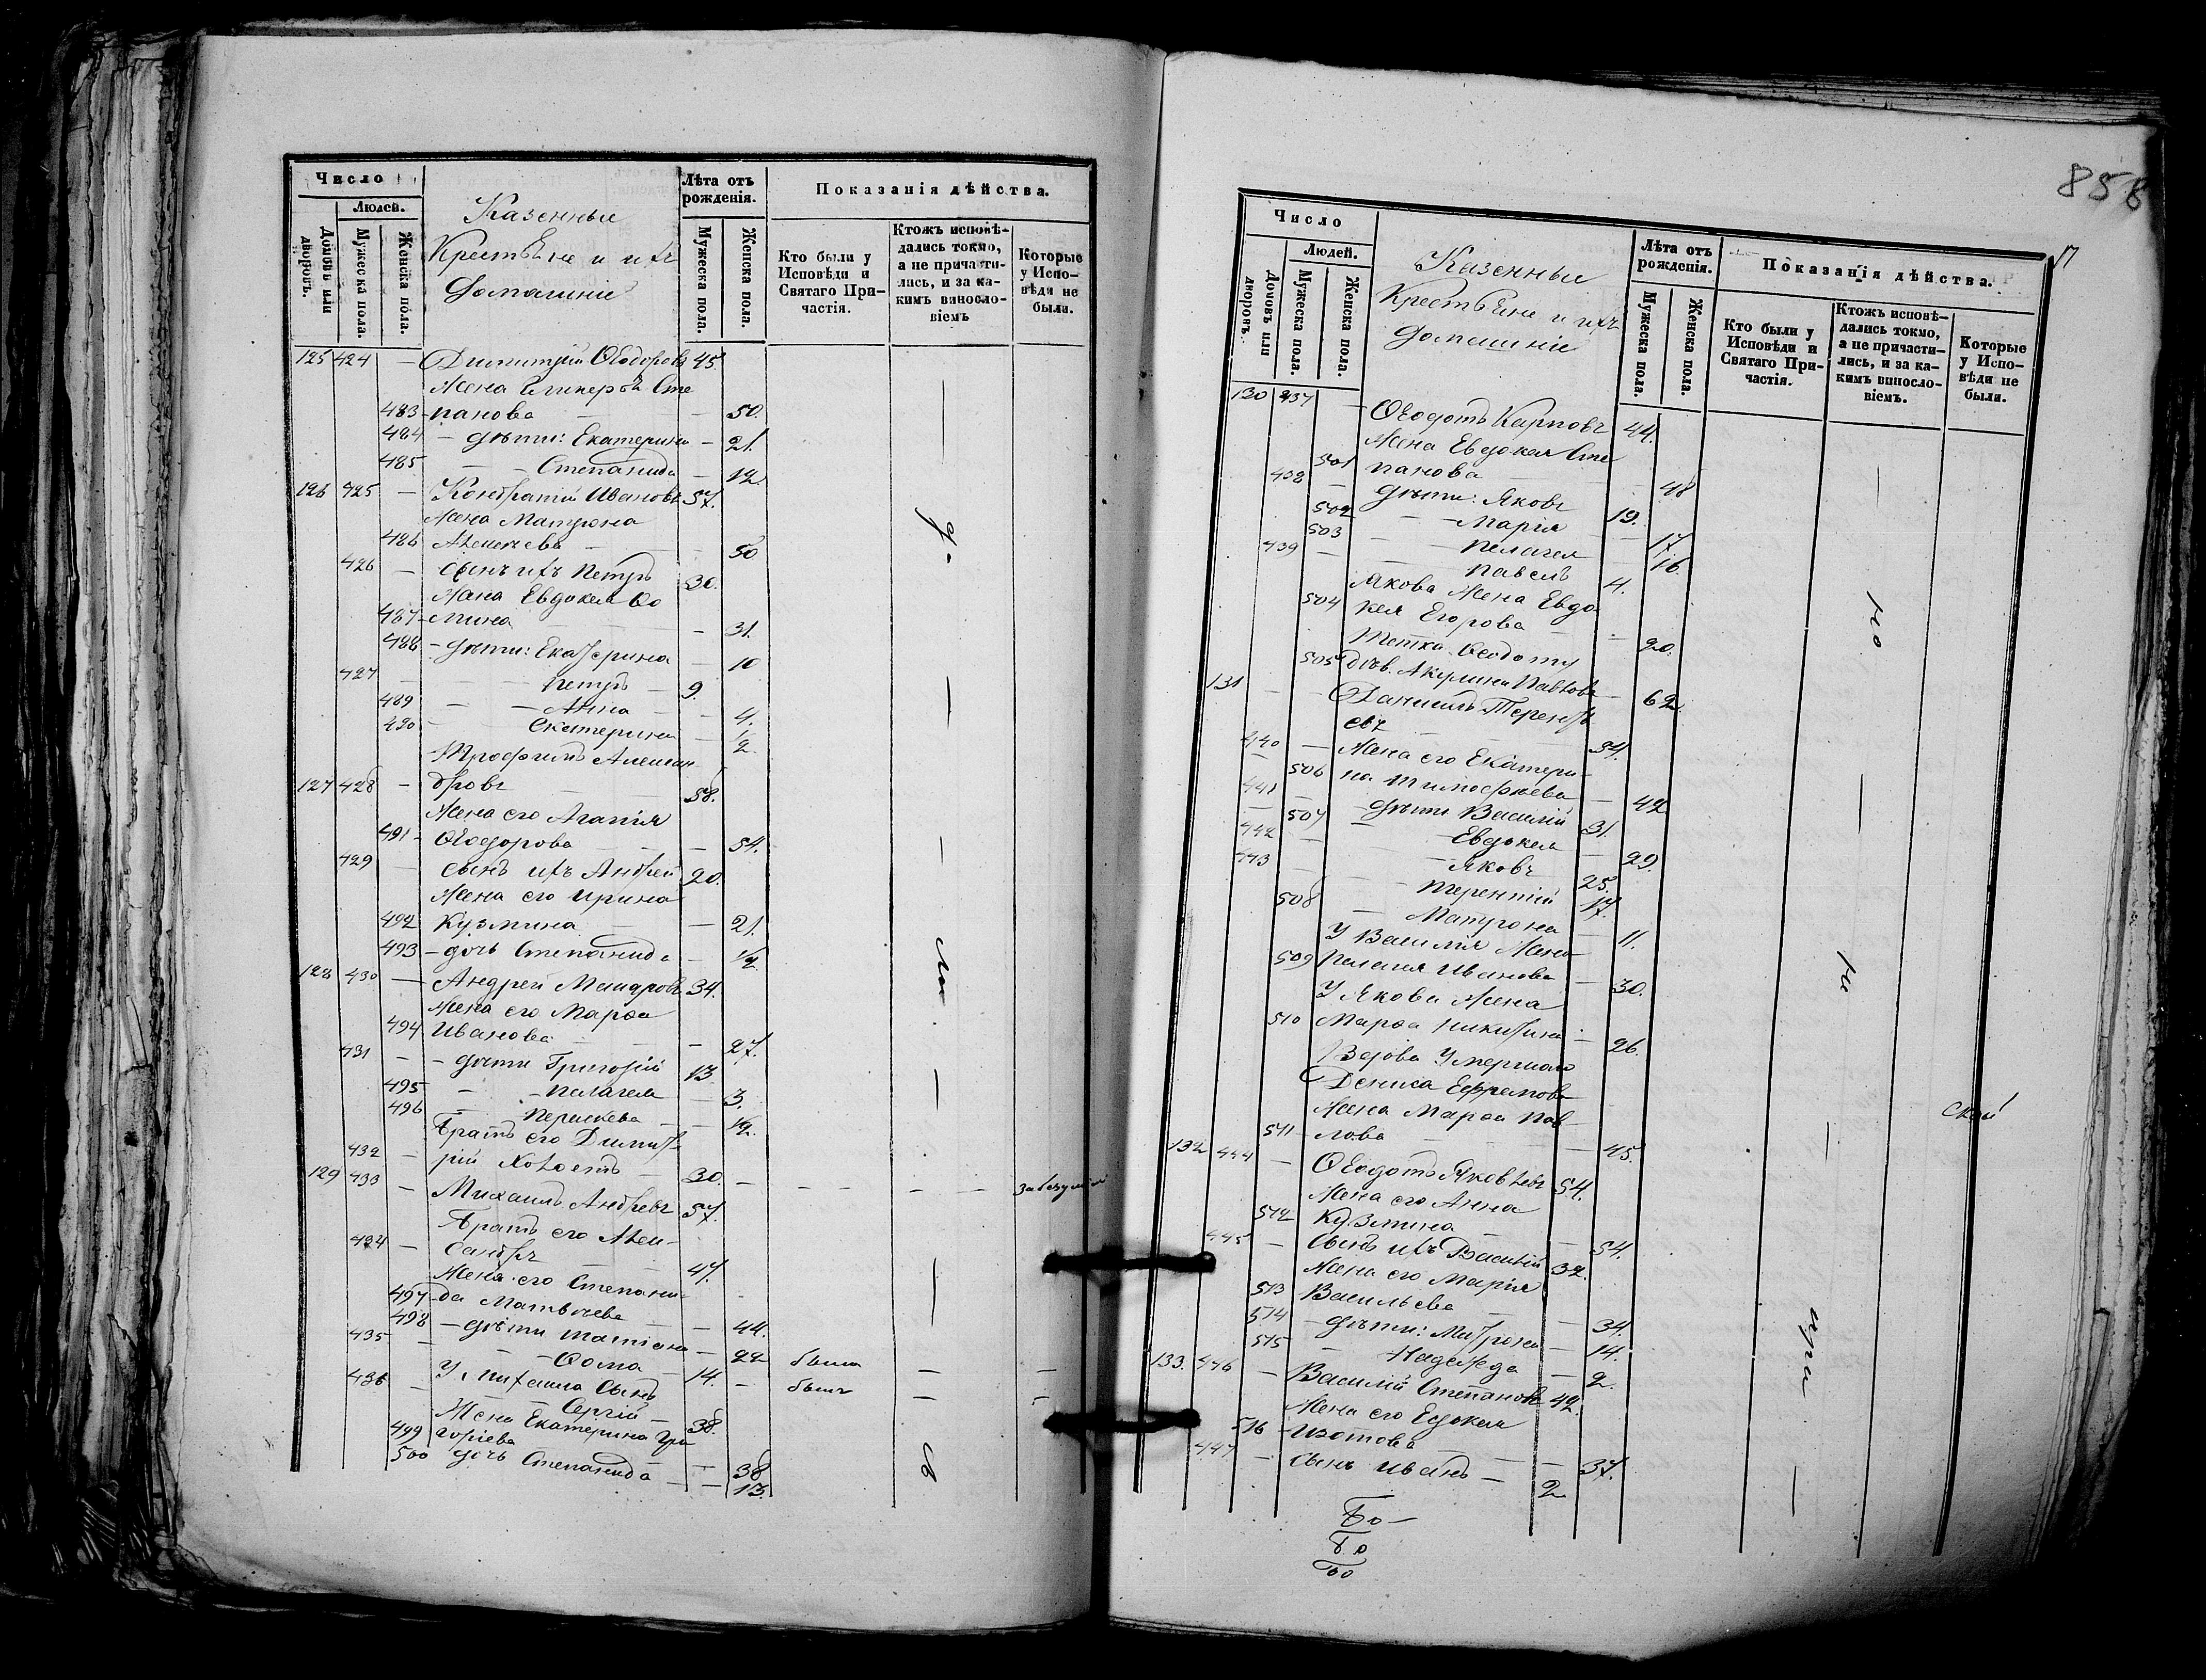 Число
Людей.
Домовъ или дворовъ.
Мужеска пола.
Женска пола.
Казенные
Крестьяне и ихъ
Домашніе
Лѣта отъ рожденія.
Мужеска пола.
Женска пола.
Показанія дѣйства.
Кто были у Исповѣди и Святаго Причастія.
Ктожъ исповѣдались токмо, а не причастились, и за какимъ винословіемъ
Которые у Исповѣди не были.
125 424 — Димитрій Ѳеодоровъ 45.
Жена Гликерія Сте
483 – панова — 50.
484 – дѣти: Екатерина – 21.
485 — Степанида — 12
126 425 — Кондратій Ивановъ 57.
Жена Матрона
486 Алексѣева — 50
426 — Сынъ ихъ Петръ 30.
Жена Евдокея Ѳо
487 – мина — 31.
488 – дѣти: Екатерина — 10
427 — Петръ — 9.
489 — Анна — 4.
490 — Екатерина — 1/2
Трофимъ Алексан
127 428 — дровъ 58.
Жена его Агапія
491 – Ѳеодорова — 54.
429 — Сынъ ихъ Андрей 20.
Жена его Ирина
492 Кузмина — 21.
493 – дочь Степанида — 1/2
128 430 — Андрей 34.
Жена его Марѳа
494 Иванова — 27.
431 — дѣти Григорій 13
495 — Пелагея — 3.
496 — Параскева — 1/2
Братъ его Димит
432 — рій Холостъ — 30.
129 433 — Михаилъ Андреевъ 57.
Братъ его Алек
434 — сандръ 47.
Жена его Степани
497 – да Матвѣева — 44.
498 – дѣти Татіана — 22 была
435 — Ѳома 14. — былъ
У Михаила Сынъ
436 — Сергій — 38.
Жена Екатерина Гри
499 горіева — 38
500 дочь Степанида — 13.
858
Число
Людей.
Домовъ или дворовъ.
Мужеска пола.
Женска пола.
Казенные
Крестьяне и ихъ
Домашніе
Лѣта отъ рожденія.
Мужеска пола.
Женска пола.
Показанія дѣйства.
Кто были у Исповѣди и Святаго Причастія.
Ктожъ исповѣдались токмо, а не причастились, и за какимъ винословіемъ.
Которые у Исповѣди не были.
130 437 — Ѳеодотъ Карповъ 44.
Жена Евдокея Сте
501 панова — 48
438 — дѣти: Яковъ 19.
502 — Марія — 17.
503 — Пелагея — 16.
439 — Павелъ 4.
Якова Жена Евдо
504 кея Егорова — 20.
Тетка Ѳеодоту
505 дѣв. Акулина Павлова — 62
131 — Даніилъ Теренть
440 — евъ 54.
Жена его Екатери
506 на Тимоѳеева — 42
441 — дѣти Василій 31.
507 — Евдокея — 29.
442 — Яковъ 25.
443 — Терентій 17.
508 — Матрона — 11.
У Василія Жена
509 Пелагея Иванова — 30.
У Якова Жена
510 Марѳа Никитина — 26.
Вдова Умершаго
Дениса Ефремова
Жена Марѳа Пав
511 – лова — 45.
132 444 — Ѳеодотъ Яковлевъ 54.
Жена его Анна
512 Кузмина — 54.
445 — Сынъ ихъ Василій 32.
Жена его Марія
513 Васильева — 34.
514 – дѣти: Матрона — 14.
515 — Надежда — 2.
133. 446 — Василій Степановъ 42.
Жена его Евдокея
516 – Изотова — 37.
447 — Сынъ Иванъ — 2
Бо —
Бо
Бо